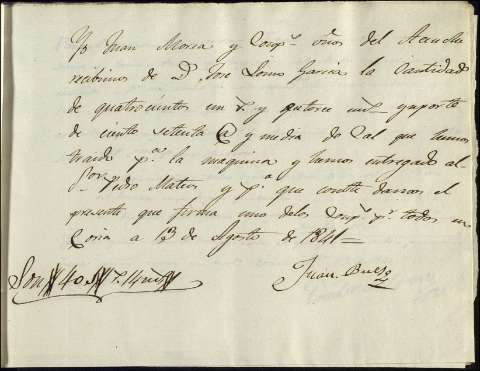 Yo Juan Mossa y Comp.ª del
recibimos de D. Jose Lomo Garcia la Cantidad
de quatrocientos un r.s y catorce mrs ymporte
de ciento setenta @ y media de Cal que hemos
traido p.ª la maquina y hemos entregado al
Sor. Pedro Mateos, y p.ª que conste damos el
presente que firma uno delos Comp.s p.r todos en
Coria a 13 de Agosto de 1841=
Son 14
Juan Bueso